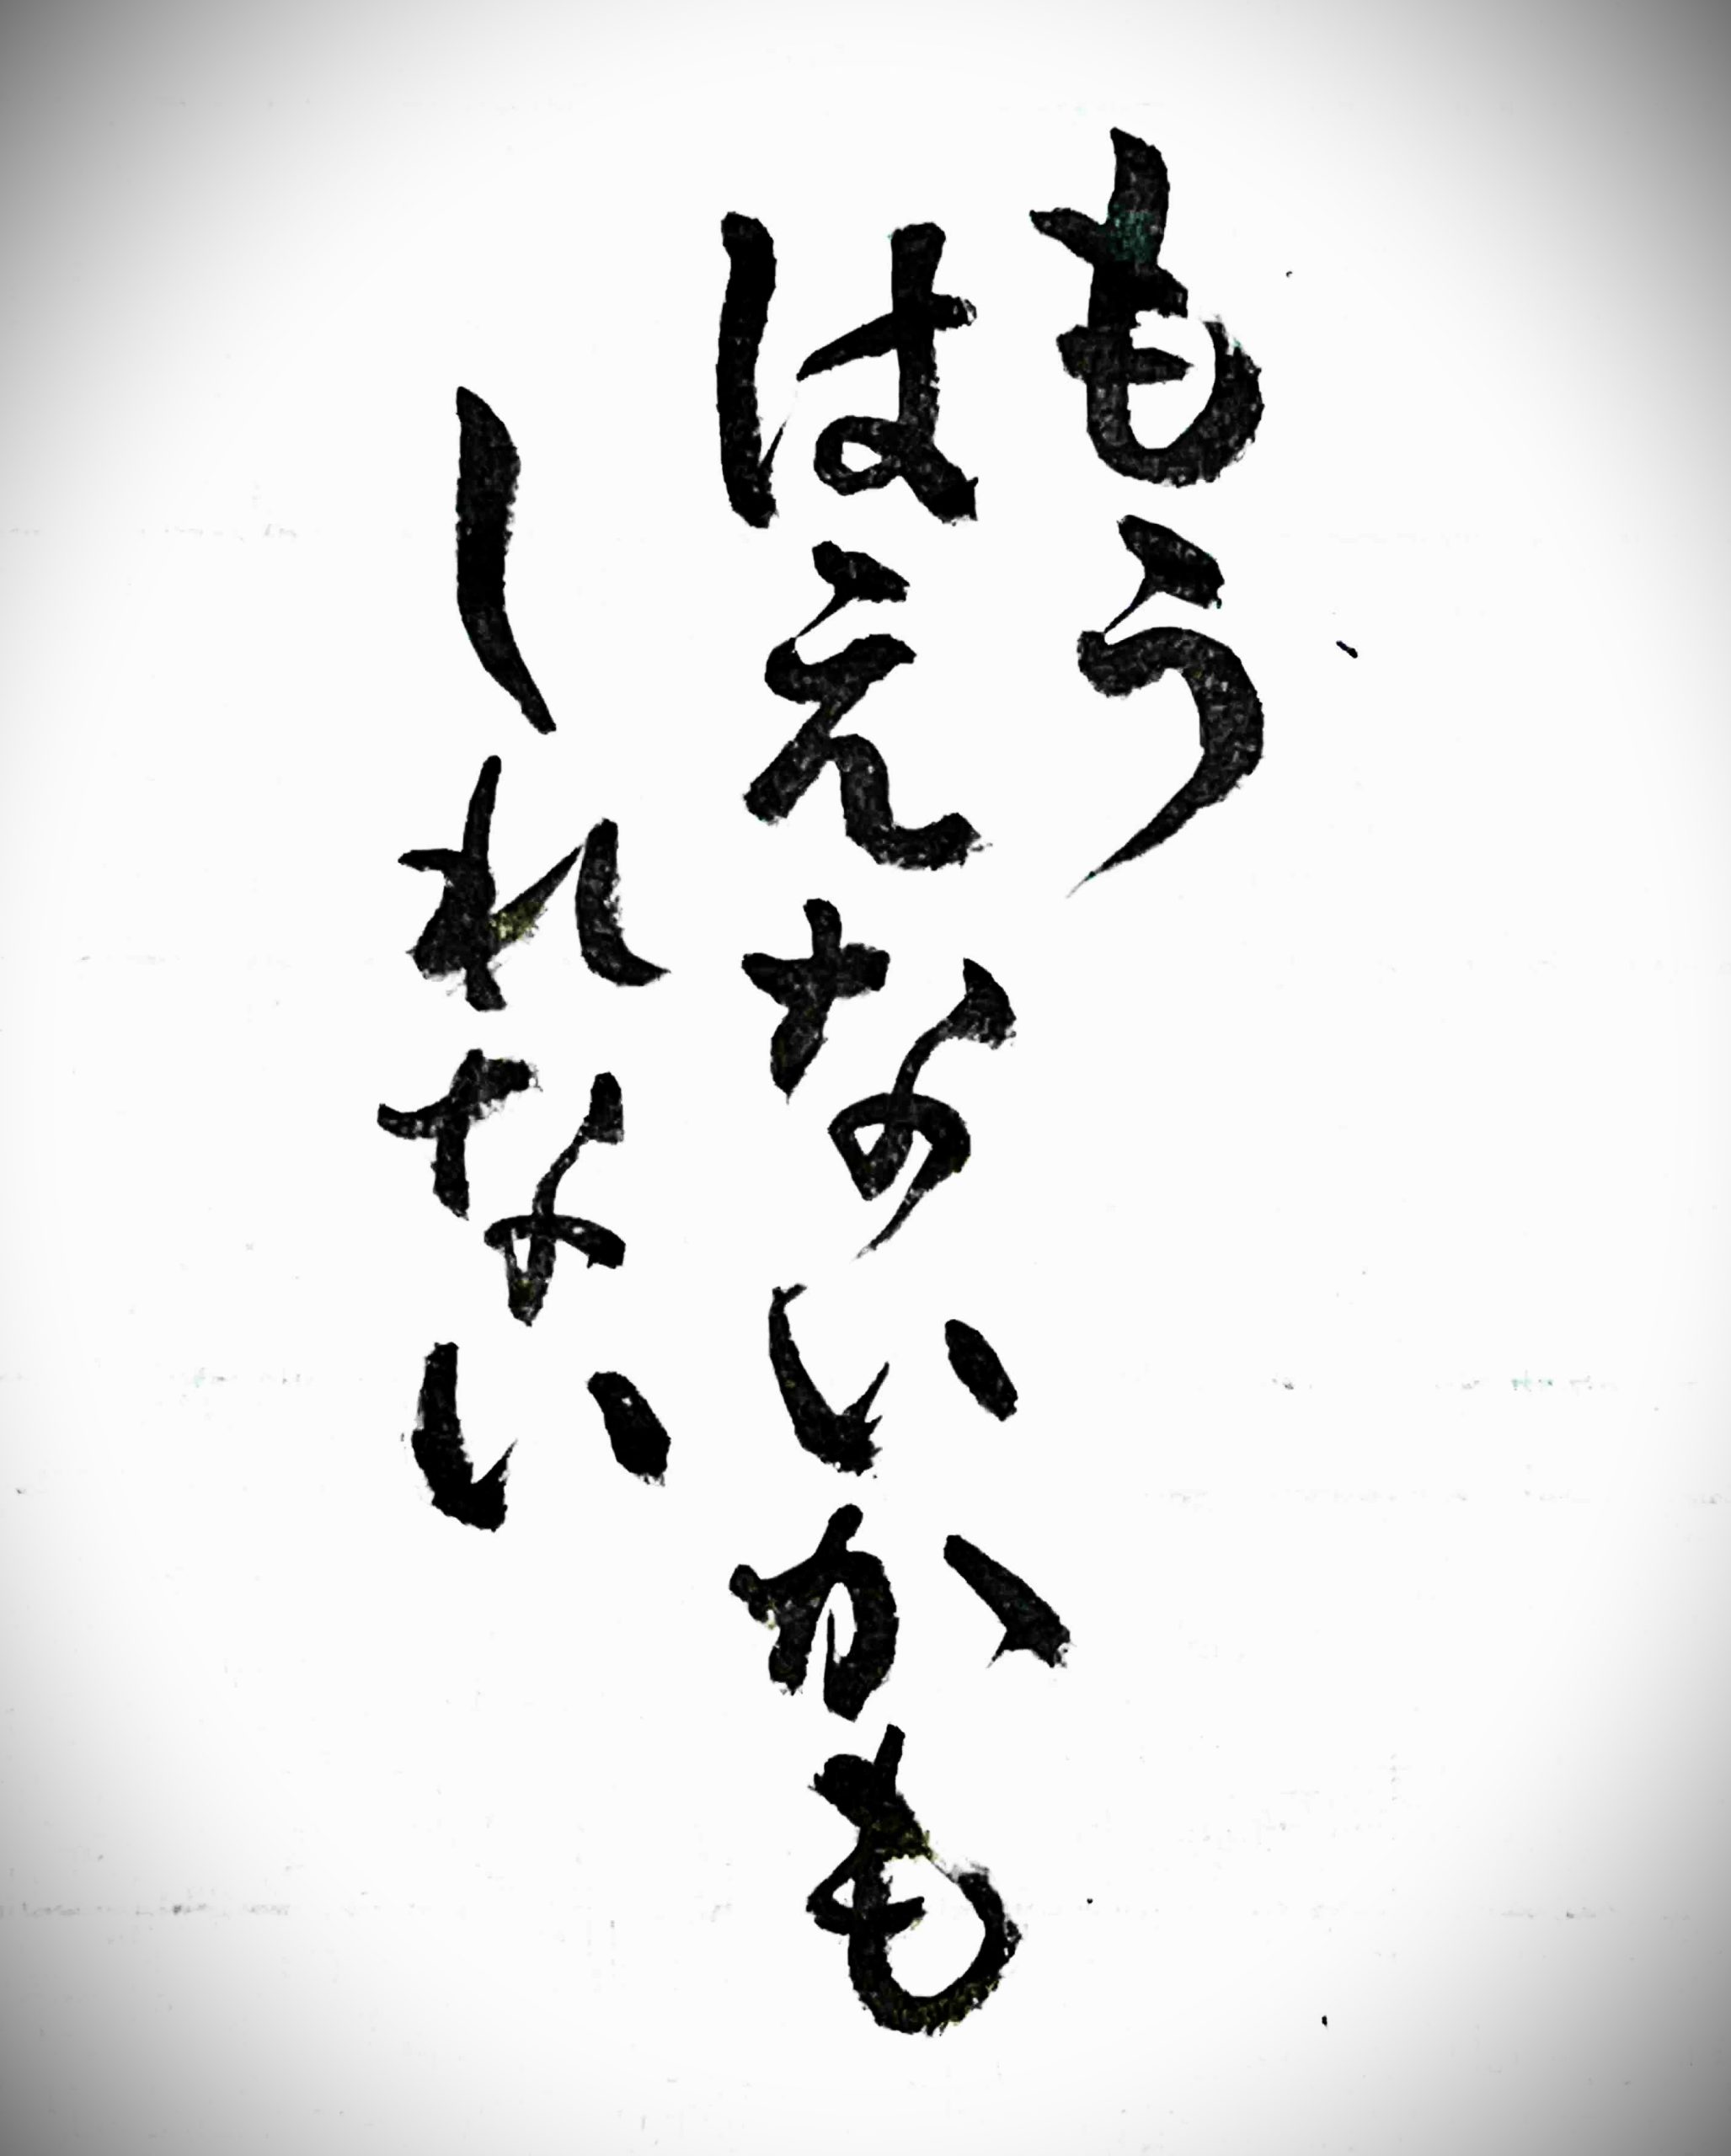 もう
はえないかも
しれない